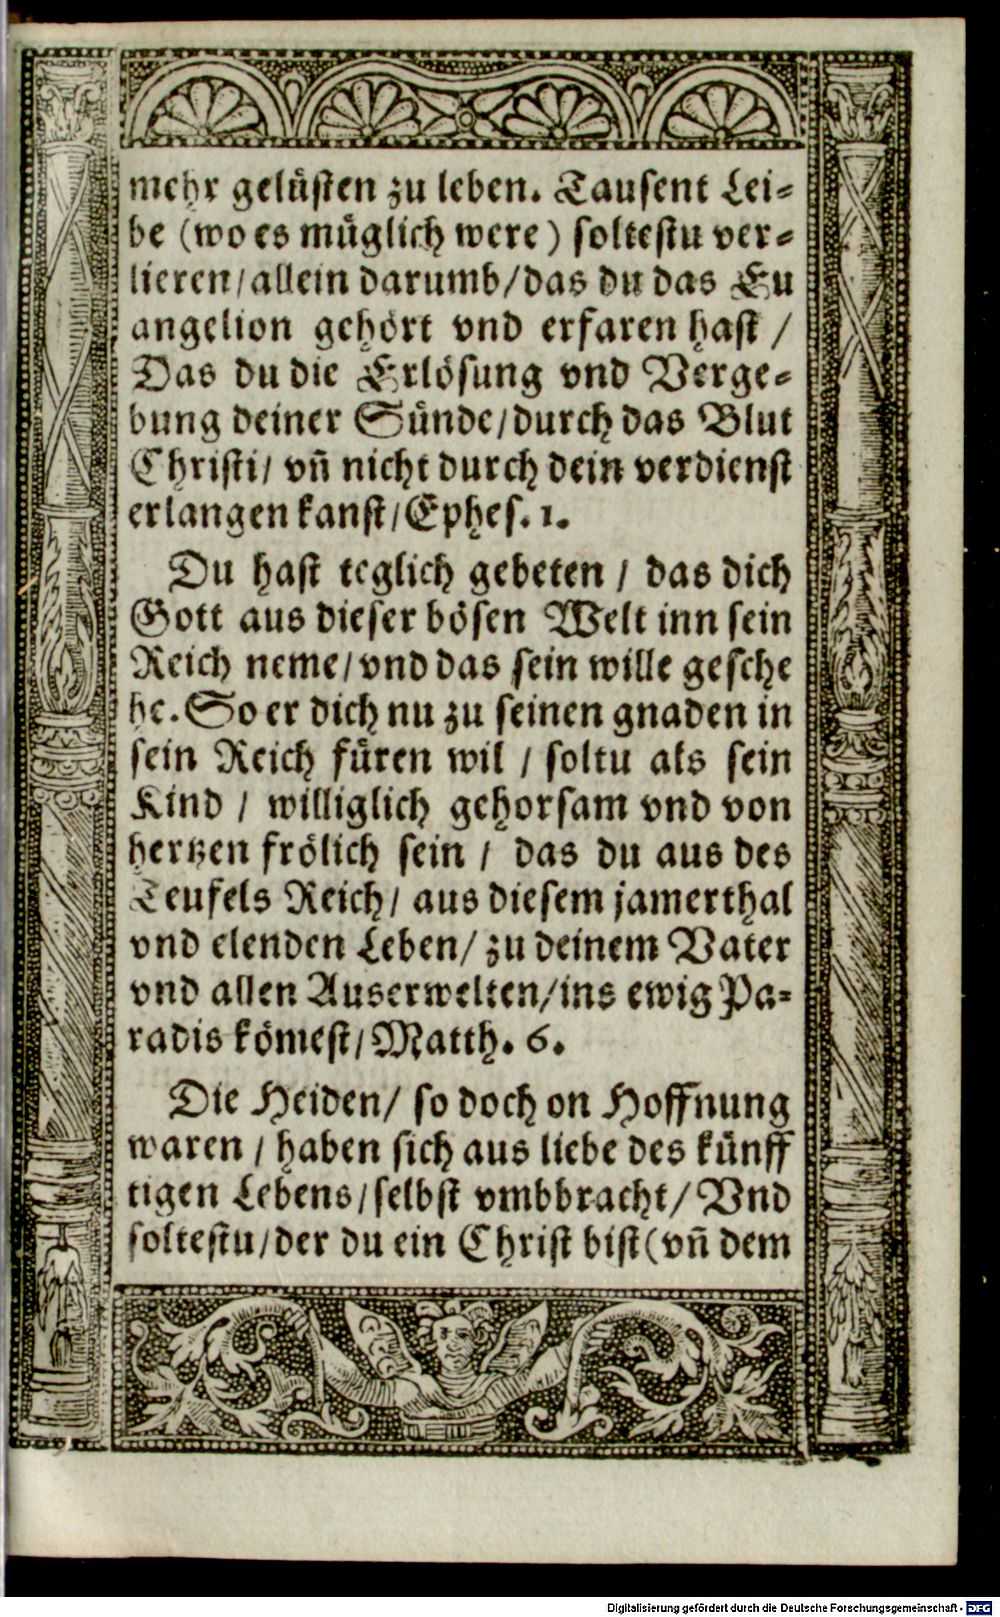 mehr gelüsten zu leben. Tausent Lei⸗
be (wo es müglich were) soltestu ver⸗
lieren/allein darumb/das du das Eu
angelion gehört vnd erfaren hast /
Das du die Erlösung vnd Verge⸗
bung deiner Sünde/durch das Blut
Christi/ vñ nicht durch dein verdienst
erlangen kanst/Ephes. 1.
Du hast teglich gebeten / das dich
Gott aus dieser bösen Welt inn sein
Reich neme/vnd das sein wille gesche
he. So er dich nu zu seinen gnaden in
sein Reich füren wil / soltu als sein
Kind / williglich gehorsam vnd von
hertzen frölich sein / das du aus des
Teufels Reich/ aus diesem jamerthal
vnd elenden Leben/ zu deinem Vater
vnd allen Auserwelten/ins ewig Pa⸗
radis kömest/Matth. 6.
Die Heiden/ so doch on Hoffnung
waren / haben sich aus liebe des künff
tigen Lebens/selbst vmbbracht/ Vnd
soltestu/der du ein Christ bist(vñ dem
Digitalisierung gefördert durch die Deutsche Forschungsgemeinschaft - DFG